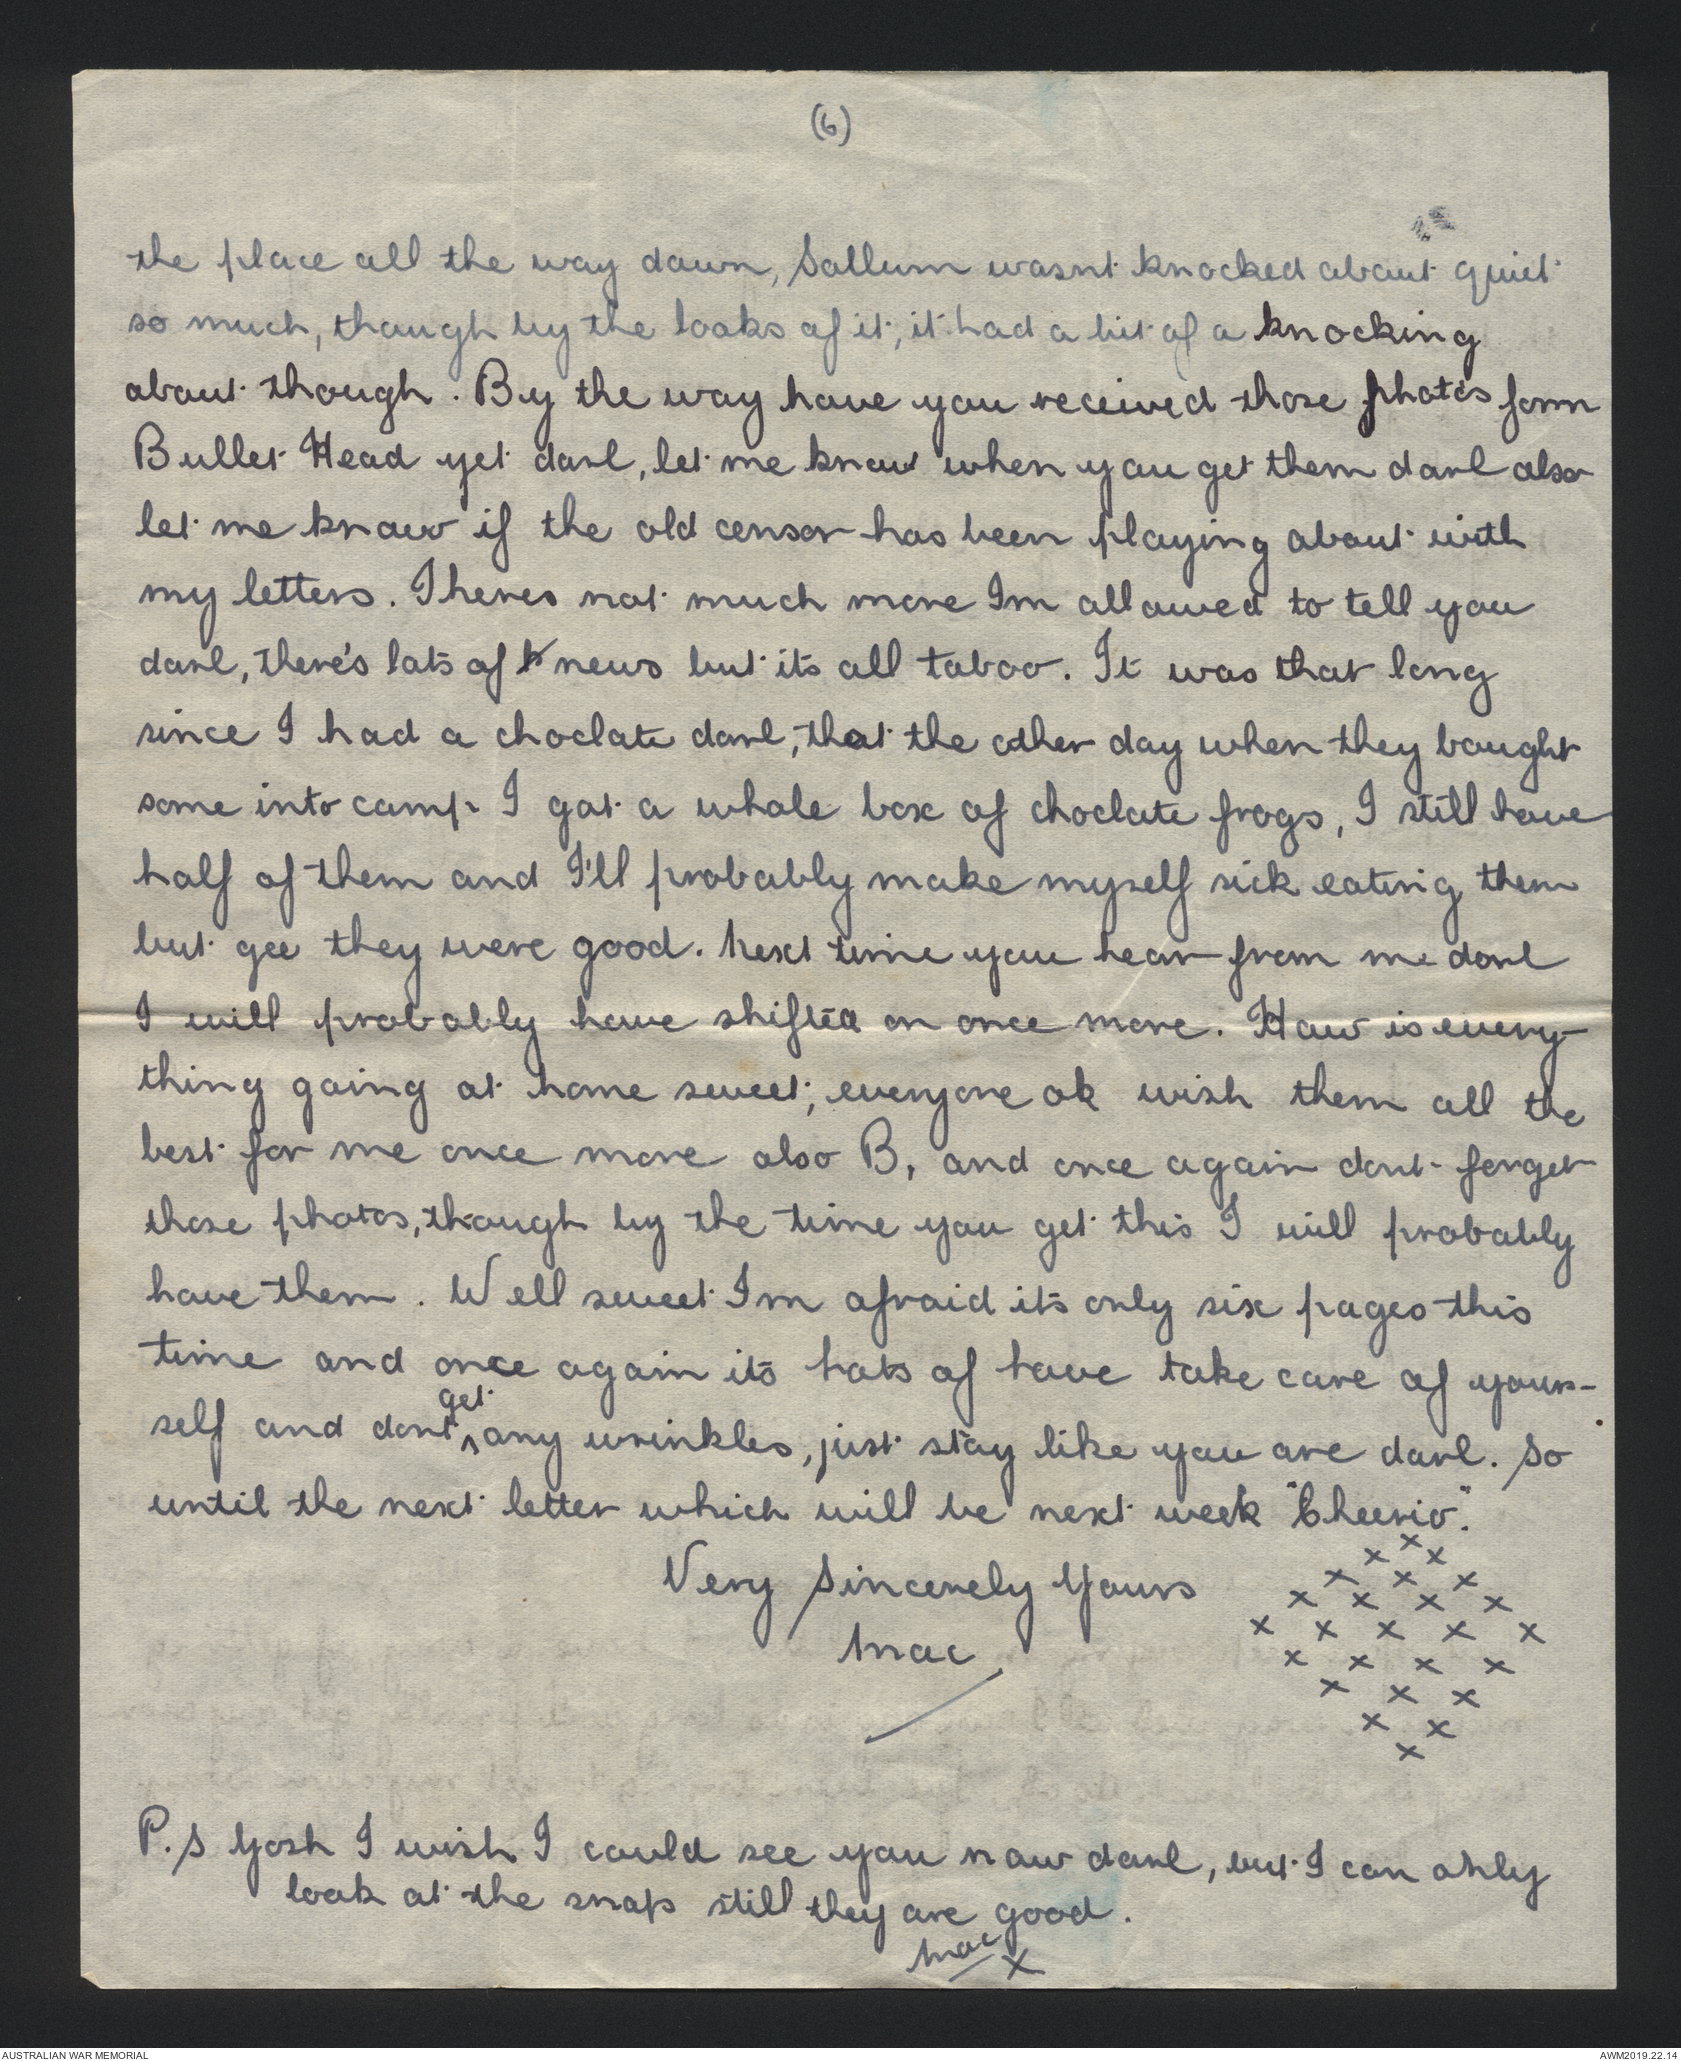 (6)
the place all the way down, Sallum wasnt knocked about quiet
so much, though by the looks of it, it had a bit of a knocking
about though. By the way have you received those photos form
Bullet Head yet darl, let me know when you get them darl also
let me know if the old censor has been playing about with
my letters. Theres not much more Im allowed to tell you
darl, there's lots of news but its all taboo. It was that long
since I had a choclate darl, that the other day when they bought
some into camp I got a whole box of choclate frogs, I still have
half of them and I'll probably make myself sick eating them
but gee they were good. Next time you hear from me darl
I will probably have shifted on once more. How is every-
thing going at home sweet, everyone ok wish them all the
best for me once more also B, and once again dont forget
those photos, though by the time you get this I will probably
have them. Well sweet Im afraid its only six pages this
time and once again its hots of have take care of your-
self and dont get any wrinkles, just stay like you are darl. So
until the next letter which will be next week "Cheerio".
Very Sincerely Yours
Mac
x
x x
x x x
x x x x
x x x x x
x x x x
x x x
x x
x
P.S Gosh I wish I could see you now darl, but I can only
look at the snaps still they are good.
Mac x
AUSTRALIAN WAR MEMORIAL
AWM2019.22.14